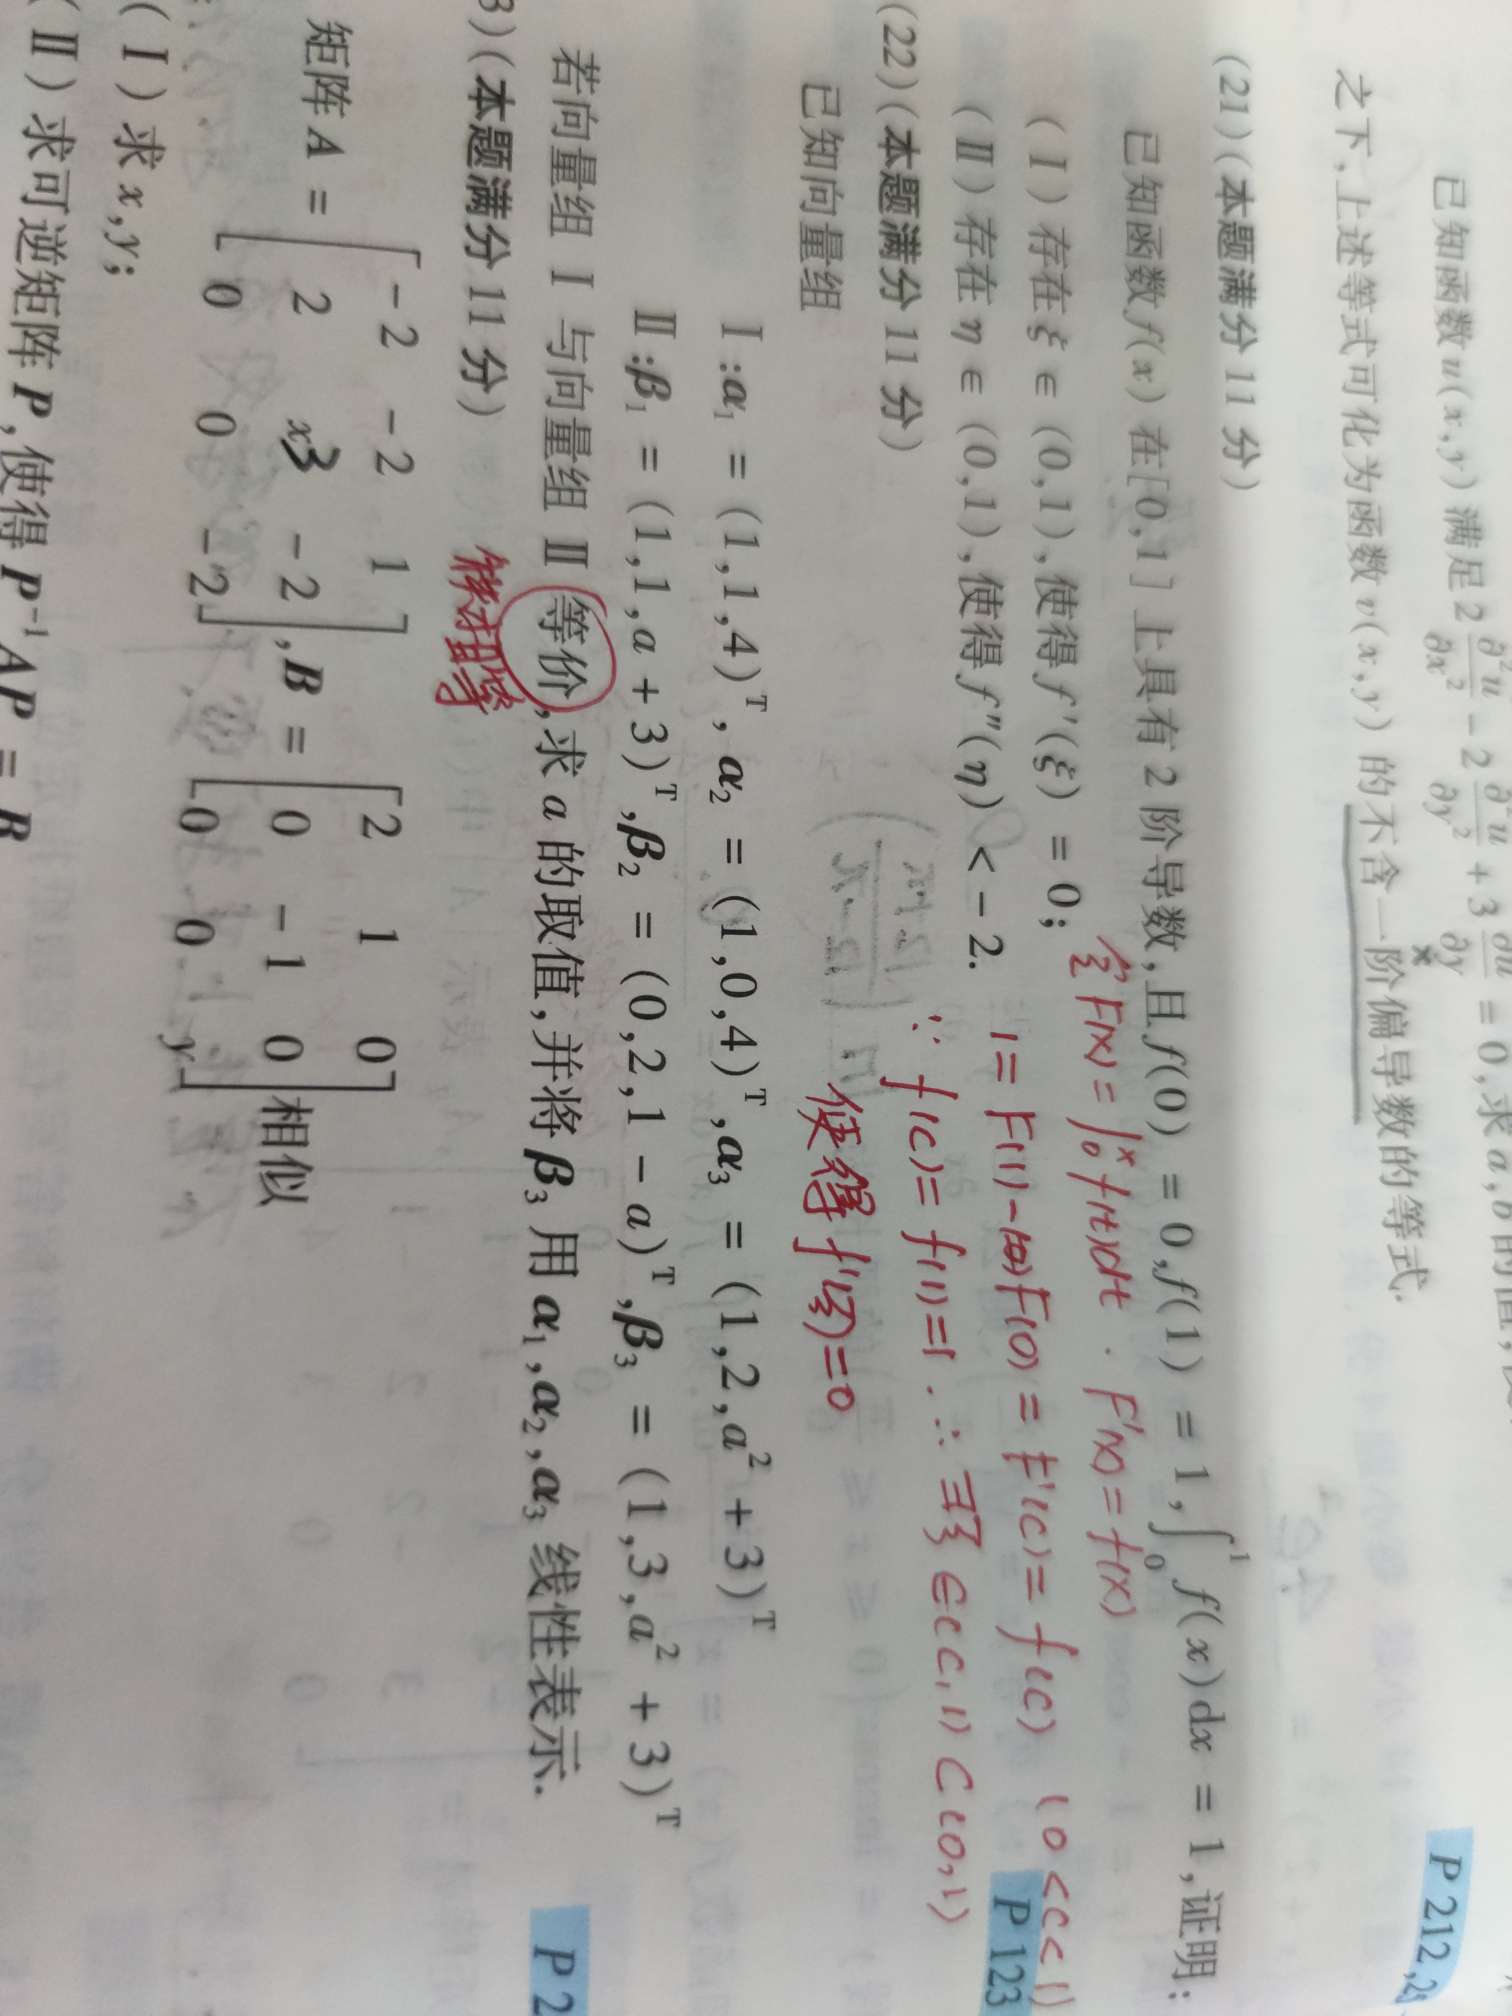 已知函数u(x,y)满足2∂²u/∂x² - 2∂²u/∂y² + 3∂u/∂y = 0,求a,b的值,
之下,上述等式可化为函数v(x,y)的不含一阶偏导数的等式.
P 212,2
(21)(本题满分11分)
已知函数f(x)在[0,1]上具有2阶导数,且f(0) = 0,f(1) = 1,∫₀¹ f(x)dx = 1,证明:
令F(x)=∫₀ˣf(t)dt. F'(x)=f(x)
(Ⅰ)存在ξ∈(0,1),使得f'(ξ) = 0;
1=F(1)-F(0)=F'(c)=f(c) (0<c<1)
(Ⅱ)存在η∈(0,1),使得f″(η) < - 2.
P 123
∵f(c)=f(1)=1.∴∃ξ∈(c,1)⊂(0,1)
使得f'(ξ)=0
(22)(本题满分11分)
已知向量组
Ⅰ:α₁ = (1,1,4)ᵀ,α₂ = (1,0,4)ᵀ,α₃ = (1,2,a² + 3)ᵀ
Ⅱ:β₁ = (1,1,a + 3)ᵀ,β₂ = (0,2,1 - a)ᵀ,β₃ = (1,3,a² + 3)ᵀ
若向量组Ⅰ与向量组Ⅱ等价,求a的取值,并将β₃用α₁,α₂,α₃线性表示.
P 2
秩相等
3)(本题满分11分)
矩阵A = [-2 -2 1; 2 x3 -2; 0 0 -2],B = [2 1 0; 0 -1 0; 0 0 y]相似
(Ⅰ)求x,y;
(Ⅱ)求可逆矩阵P,使得P⁻¹AP = B